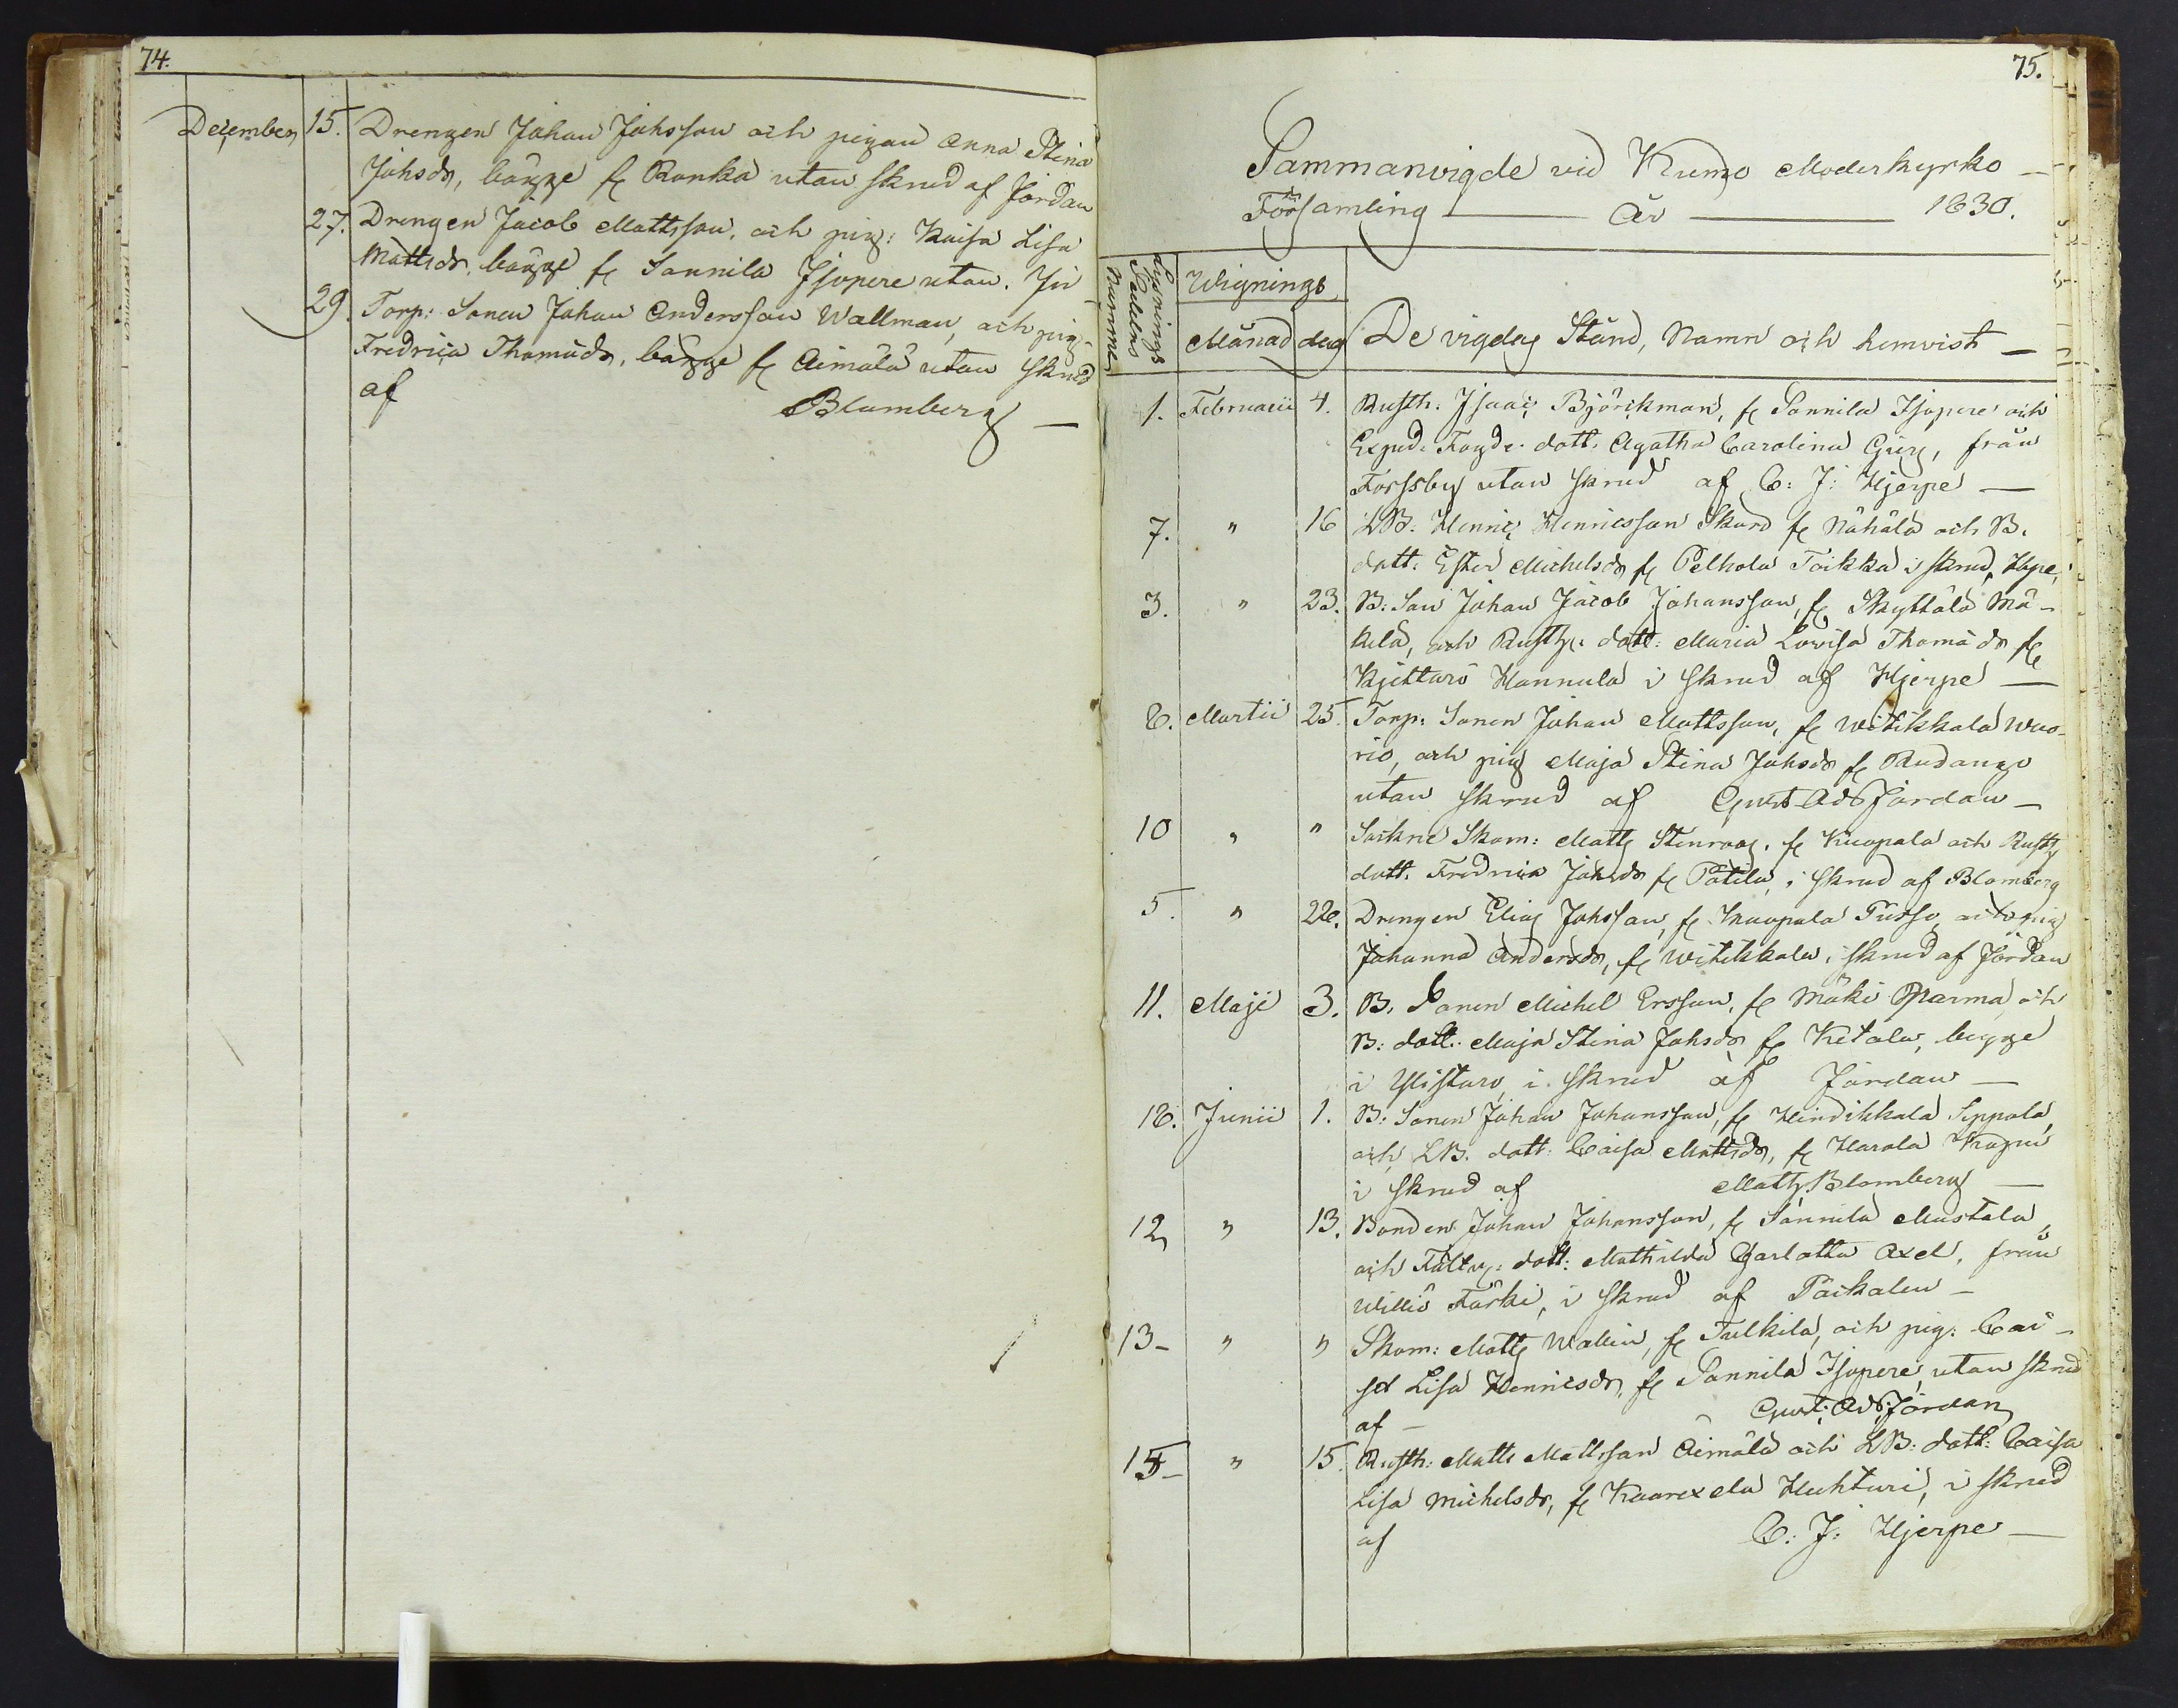 74.
December 15. Drengen Johan Johsson och pigan Anna Stina
Johsdr, bägge fr Ronka utan skrud af Jordan
27. Drengen Jacob Mattsson, och pig: Kaisa Lisa
Mattsdr, bägge fr Sonnila Isopere utan.
29. Torp: Sonen Johan Andersson Wallman, och pig
Fredrica Thomädr, bägge fr Aimälä utan skrud
af Blomberg
75.
Sammanvigde vid Kumo Moderkyrko
Församling År 1830.
Lysnings Sedelns Nummer
Wignings
Månad dag De vigdas Stånd, Namn och hemvist
1. Februarii 4. Rusth. Isaac Björkman, fr Sonnila Isopere och
Exped. Fogde. dott. Agatha Carolina, från
Forssby utan skrud af C: J: Hjerpe
7. " 16 LB. Henric Henricsson Skard fr Nähälä och B.
dott: Ester Michelsdr fr Pelhola Toikka i skrud,
3. " 23. B: Son Johan Jacob Johansson, fr Skyttälä Mä-
kilä, och Rusth: dott: Maria Lovisa Thomädr fr
Kjettarö Hannula i skrud af Hjerpe
8. Martii 25. Torp: Sonen Johan Mattsson, fr Witikkala Wuo-
rio, och pig Maja Stina Johsdr fr Rudanго
utan skrud af Gust Ad Jordan
10 " " Sockne Skom: Matts Stenroos. fr Kuopala och Rusth
dott. Fredrica Johsdr fr Pätilä, i skrud af Blomberg
5. " 28. Drengen Elias Johsson, fr Kuopala Pusso, och pig
Johanna Andersdr, fr Witikkala, i skrud af Jordan
11. Maji 3. B. Sonen Michel Ersson, fr Mäki Parma, och
B: dott: Maja Stina Johsdr fr Ketola, begge
i Ylistaro, i skrud af Jordan
18. Junii 1. B: Sonen Johan Johansson, fr Hindikkala Seppälä,
och LB. dott: Caisa Mattsdr, fr Harola
i skrud af Matts Blomberg
12 " 13. Bonden Johan Johansson, fr Sonnila Mustala,
och dott: Mathilda Charlotta Axel, från
Williö Färki, i skrud af Päikalen
13- " " Skom: Matts Wallin, fr Tulkila, och pig: Cai-
sa Lisa Henricsdr, fr Sonnila Isopere, utan skrud
af - Gust: Ad: Jordan
15- " 15. Rusth: Matts Mattsson Aimälä och LB: dott: Caisa
Lisa Michelsdr, fr Kaarexela Huhturi, i skrud
af C: J: Hjerpe